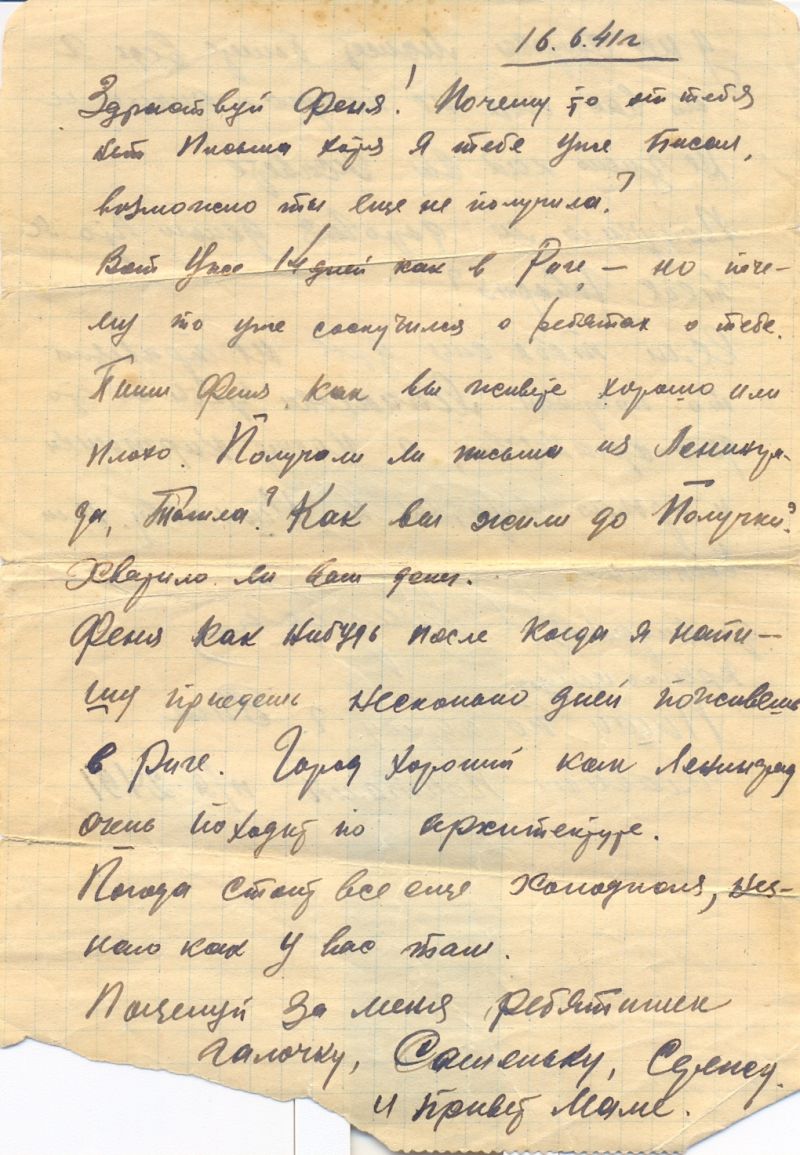 16.6.41г
Здраствуй Феня! Почему то от тебя
нет письма хотя я тебе уже писал,
возможно ты еще не получила?
Вот уже 14 дней как в Риге — но поче-
му то уже соскучился о ребятах о тебе.
Пиши Феня как вы живете хорошо или
плохо. Получали ли письма из Ленингра-
да, ? Как вы жили до получки?
Хватило ли вам денег.
Феня как нибудь после когда я напи-
шу приедешь несколько дней поживешь
в Риге. Город хороший как Ленинград
очень походит по архитектуре.
Погода стоит все еще холодная, нез-
наю как у вас там.
Поцелуй за меня ребятишек
Галочку, Сашеньку,
и привет маме.